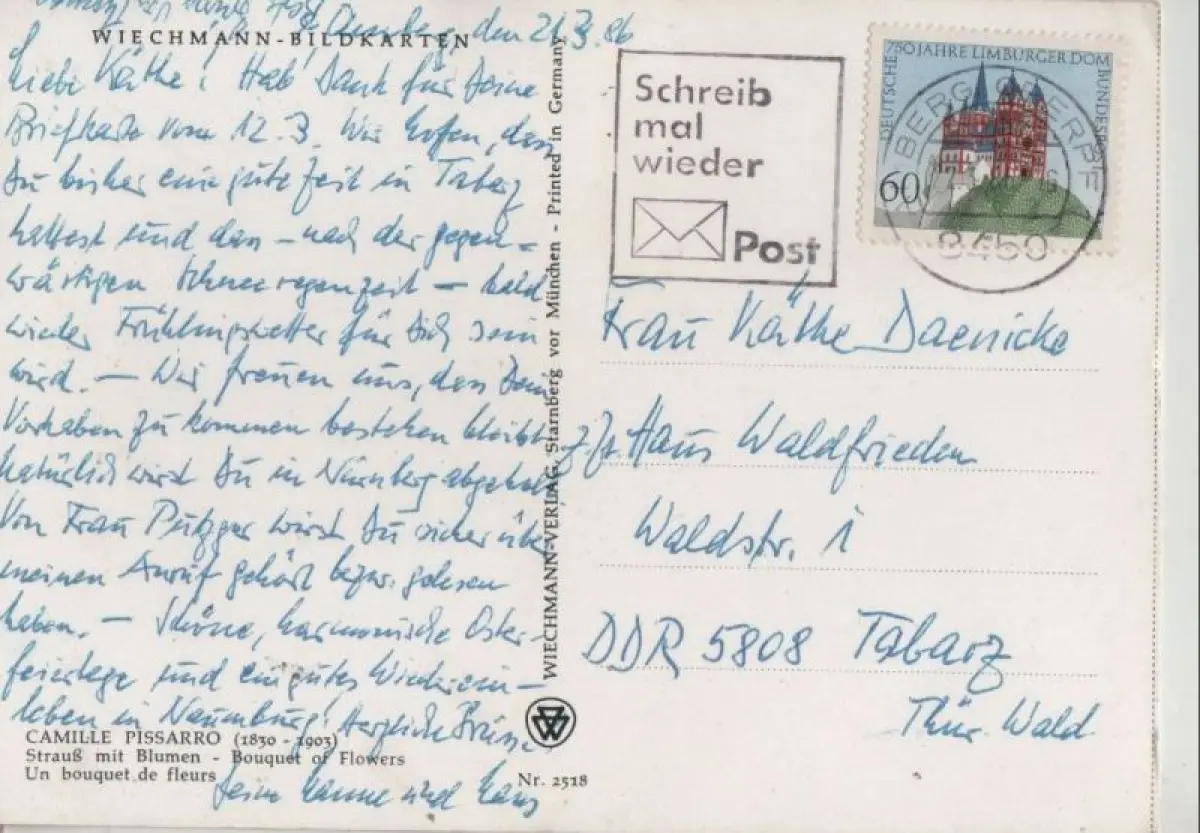 WIECHMANN-BILDKARTEN
den 21.3.86
Liebe Käthe! Hab Dank für Deine
Briefkarte vom 12.3. Wir hoffen, dass
Du bisher eine gute Zeit in Tabarz
hattest und dass – nach der gegen-
wärtigen Schneeregenzeit – bald
wieder Frühlingswetter für Dich sein
wird. – Wir freuen uns, dass Dein
Vorhaben zu kommen bestehen bleibt
natürlich wirst Du in Nürnberg abgeholt
Von Frau Putzger wirst Du sicher über
meinen Anruf gehört bezw. gelesen
haben. – Schöne, harmonische Oster-
feiertage und ein gutes Wiederein-
leben in Naumburg! Herzliche Grüsse
Hanne und Hans
CAMILLE PISSARRO (1830 - 1903)
Strauß mit Blumen - Bouquet of Flowers
Un bouquet de fleurs
Nr. 2518
WIECHMANN-VERLAG, Starnberg vor München - Printed in Germany
Schreib
mal
wieder
Post
750 JAHRE LIMBURGER DOM
DEUTSCHE BUNDESPOST
60
BERG, OBERPF
8450
Frau Käthe Daenicke
z.Zt. Haus Waldfrieden
Waldstr. 1
DDR 5808 Tabarz
Thür. Wald